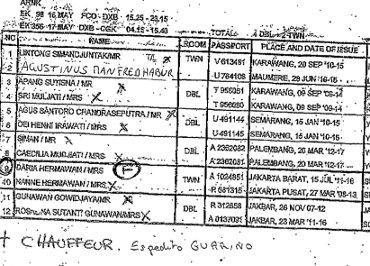 ARNK
EK 98 16 MAY FCO - DXB 15.25 - 23.15
EK 356 17 MAY DXB - CGK 04.15 - 15.40
TOTAL: 4 DBL + 2 TWN
NO NAME ROOM PASSPORT PLACE AND DATE OF ISSUE
1 LINTONG SIMANDJUNTAK/MR TWN V 613491 KARAWANG, 20 SEP '10-15
2 AGUSTINUS MANFRED HABUR U 784106 MAUMERE, 29 JUN '10-15
3 APANG SUTISNA / MR X DBL T 956061 KARAWANG, 09 SEP '09-14
4 SRI MULJATI / MRS X T 956060 KARAWANG, 09 SEP '09-14
5 AGUS SANTORO CHANDRASEPUTRA / MR X DBL U 491144 SEMARANG, 15 JAN '10-15
6 DEI HENNI IRAWATI / MRS X U 491145 SEMARANG, 15 JAN '10-15
7 SIMAN / MR DBL A 2362082 PALEMBANG, 20 MAR '12-17
8 CAECILIA MUDJIATI / MRS A 2362081 PALEMBANG, 20 MAR '12-17
9 DARIA HERMAWAN / MRS F TWN A 1024851 JAKARTA BARAT, 15 JUL '11-16
10 NANNE HERMAWAN / MRS X R 581315 JAKARTA PUSAT, 27 MAR '08-13
11 GUNAWAN GOWIDJAYA/MR X DBL R 312858 JAKBAR, 26 NOV 07-12
12 ROSALINA SUTANTI GUNAWAN/MRS X A 0137021 JAKBAR, 23 MAR '11-16
+ CHAUFFEUR. Espedito GUARINO